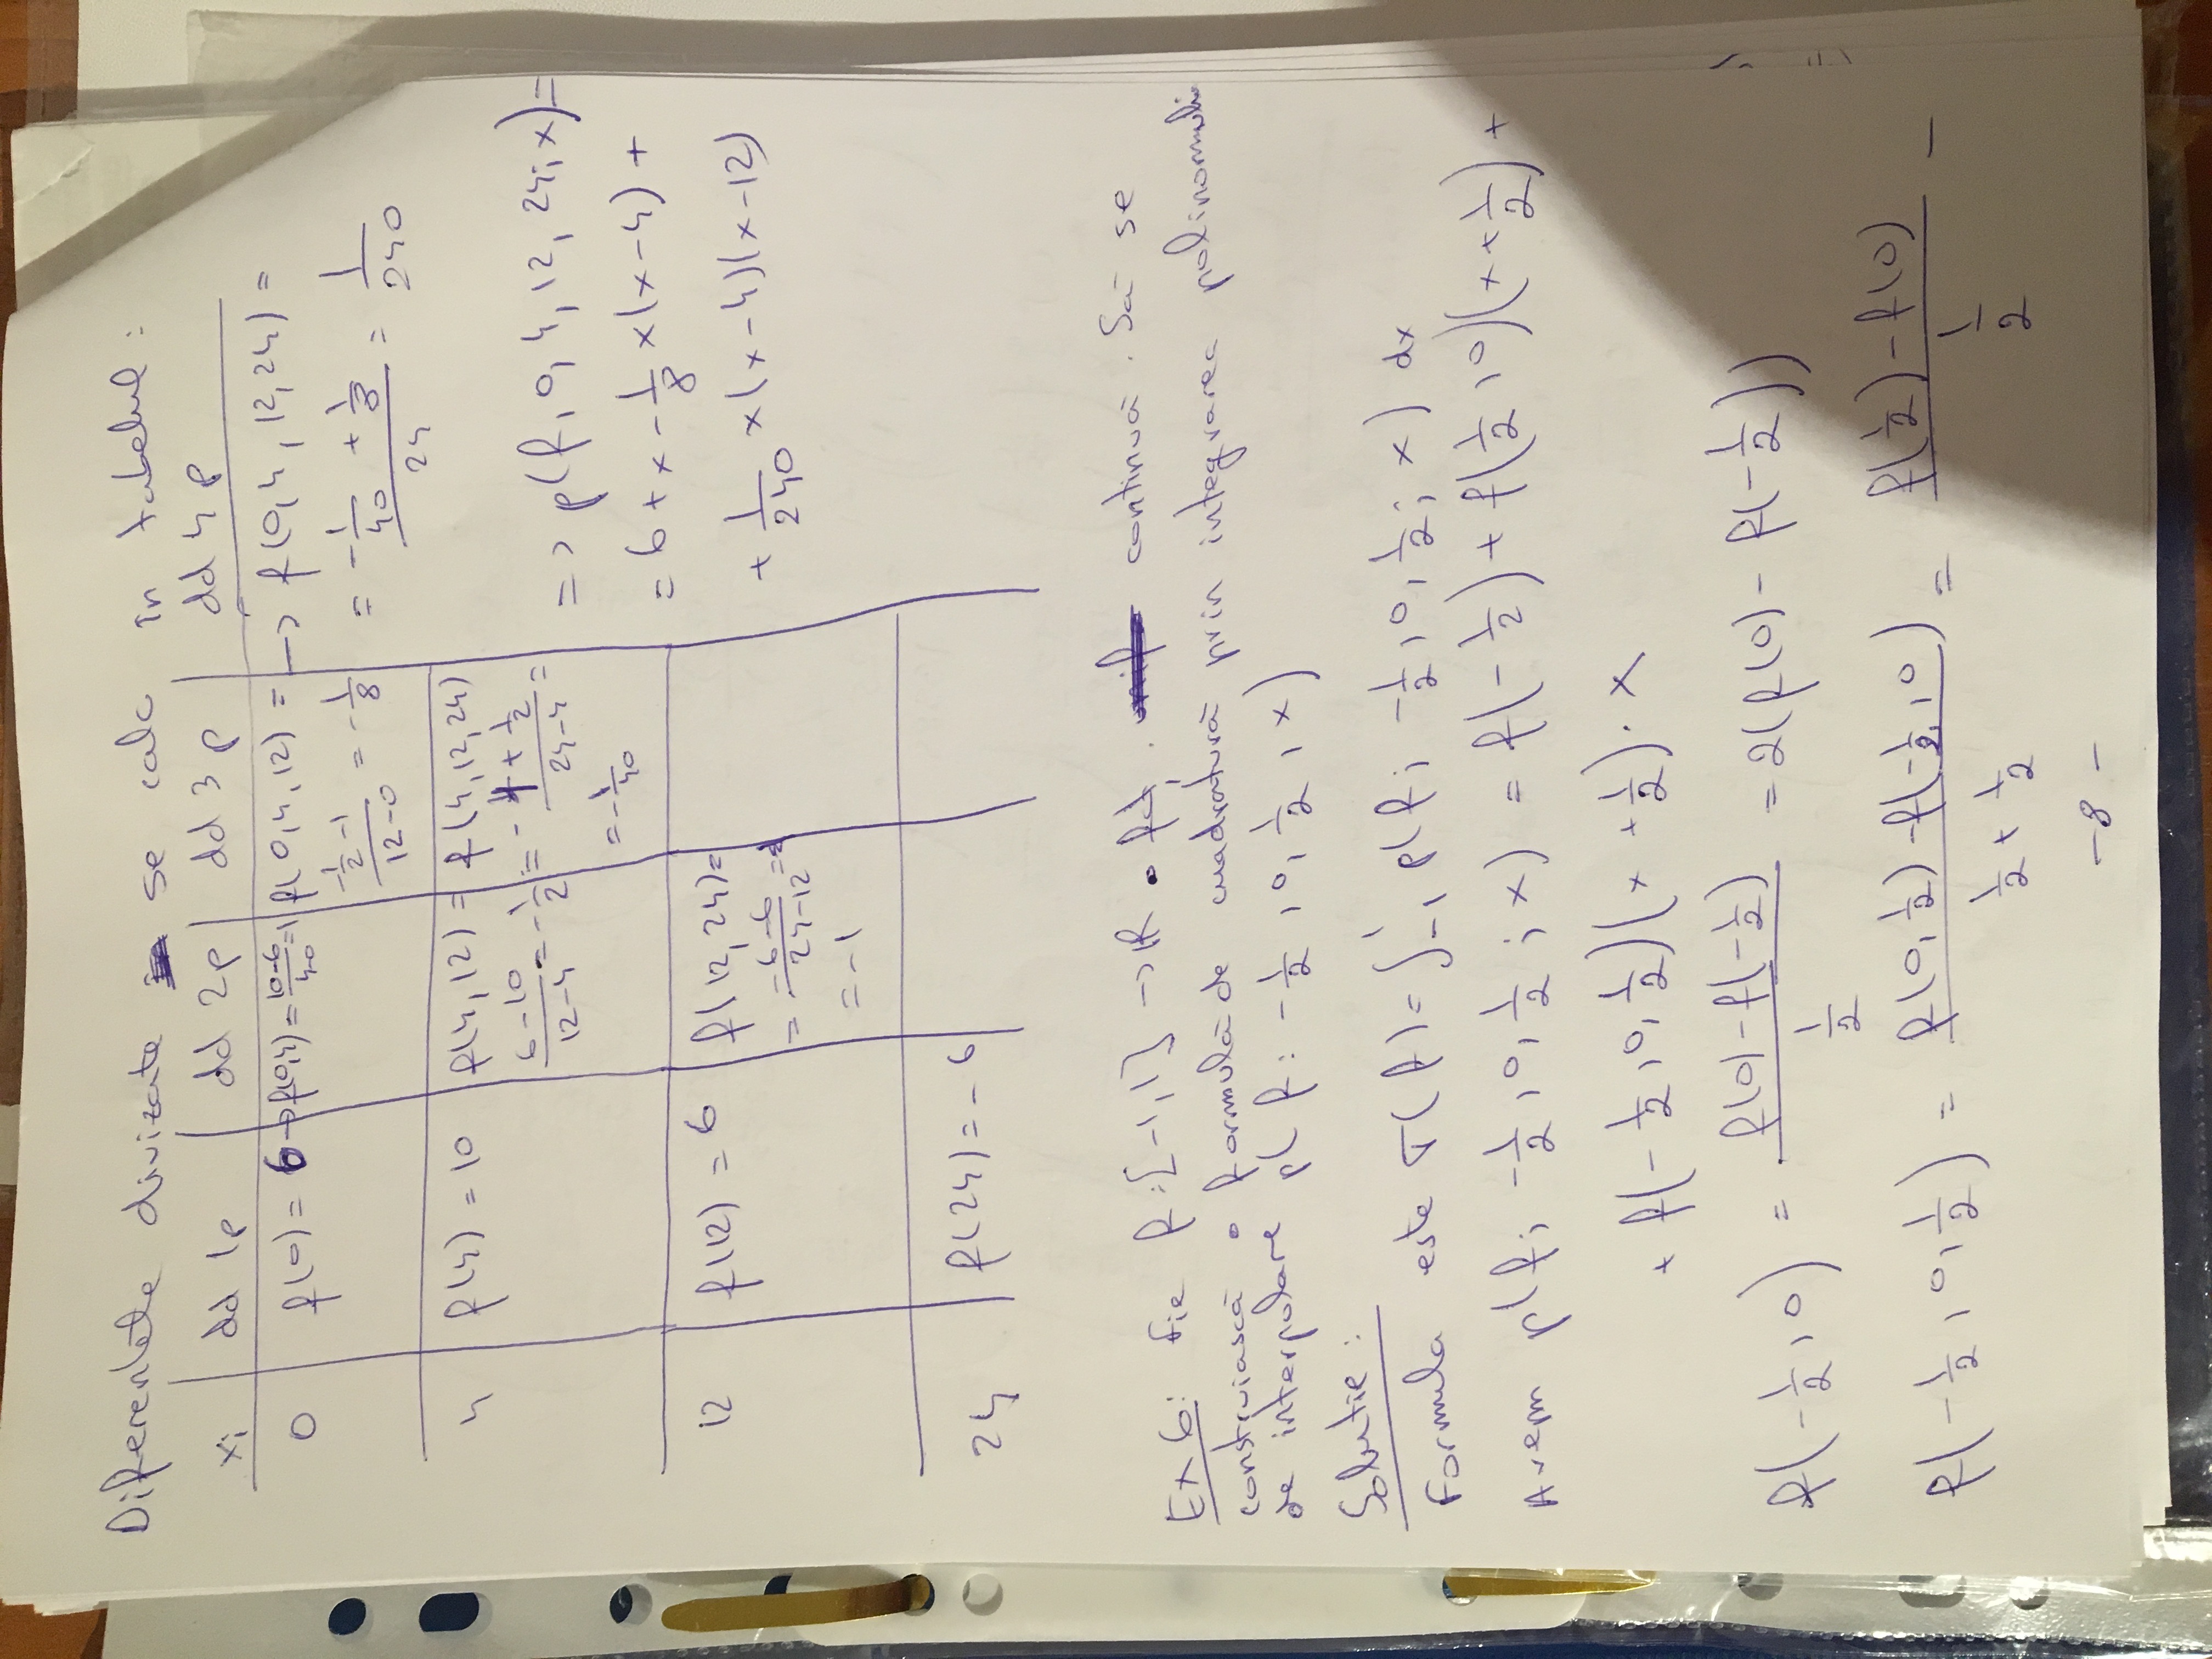 Diferențele divizate se calc în tabelul:
xi | dd 1p | dd 2p | dd 3p | dd 4p
0 | f(0) = 6 → | f(0,4) = (10-6)/(4-0) = 1 | f(0,4,12) = (-1/2 - 1)/(12-0) = -1/8 | → f(0,4,12,24) = = (-1/40 + 1/8)/24 = 1/240
4 | f(4) = 10 | f(4,12) = (6-10)/(12-4) = -1/2 | f(4,12,24) = (-1 + 1/2)/(24-4) = = -1/40
12 | f(12) = 6 | f(12,24) = = (-6-6)/(24-12) = = -1
24 | f(24) = -6
=> p(f, 0, 4, 12, 24; x) =
= 6 + x - 1/8 x(x-4) +
+ 1/240 x(x-4)(x-12)
Ex 6: Fie f:[-1,1] → ℝ continuă. Să se
construiască formulă de cuadratură prin integrarea polinomului
de interpolare p(f; -1/2, 0, 1/2, x)
Soluție:
Formula este σ(f) = ∫₋₁¹ p(f; -1/2, 0, 1/2; x) dx
Avem p(f; -1/2, 0, 1/2; x) = f(-1/2) + f(1/2, 0)(x + 1/2) +
+ f(-1/2, 0, 1/2)(x + 1/2) · x
f(-1/2, 0) = (f(0) - f(-1/2))/(1/2) = 2(f(0) - f(-1/2))
f(-1/2, 0, 1/2) = (f(0, 1/2) - f(-1/2, 0))/(1/2 + 1/2) = (f(1/2) - f(0))/(1/2) -
-8-